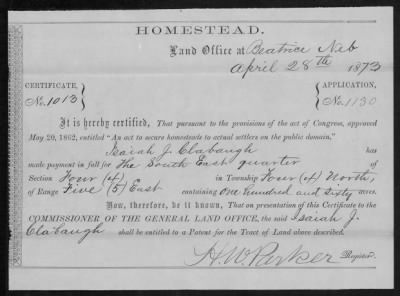 HOMESTEAD.
Land Office at Beatrice Neb
April 28th 1873
CERTIFICATE, APPLICATION,
No. 1013 No. 1130
It is hereby certified, That pursuant to the provisions of the act of Congress, approved
May 20, 1862, entitled "An act to secure homesteads to actual settlers on the public domain,"
Isaiah J. Clabaugh has
made payment in full for The South East quarter of
Section Four (4) in Township Four (4) North,
of Range Five (5) East containing One hundred and Sixty acres.
Now, therefore, be it known, That on presentation of this Certificate to the
COMMISSIONER OF THE GENERAL LAND OFFICE, the said Isaiah J.
Clabaugh shall be entitled to a Patent for the Tract of Land above described.
H. W. Parker Register.